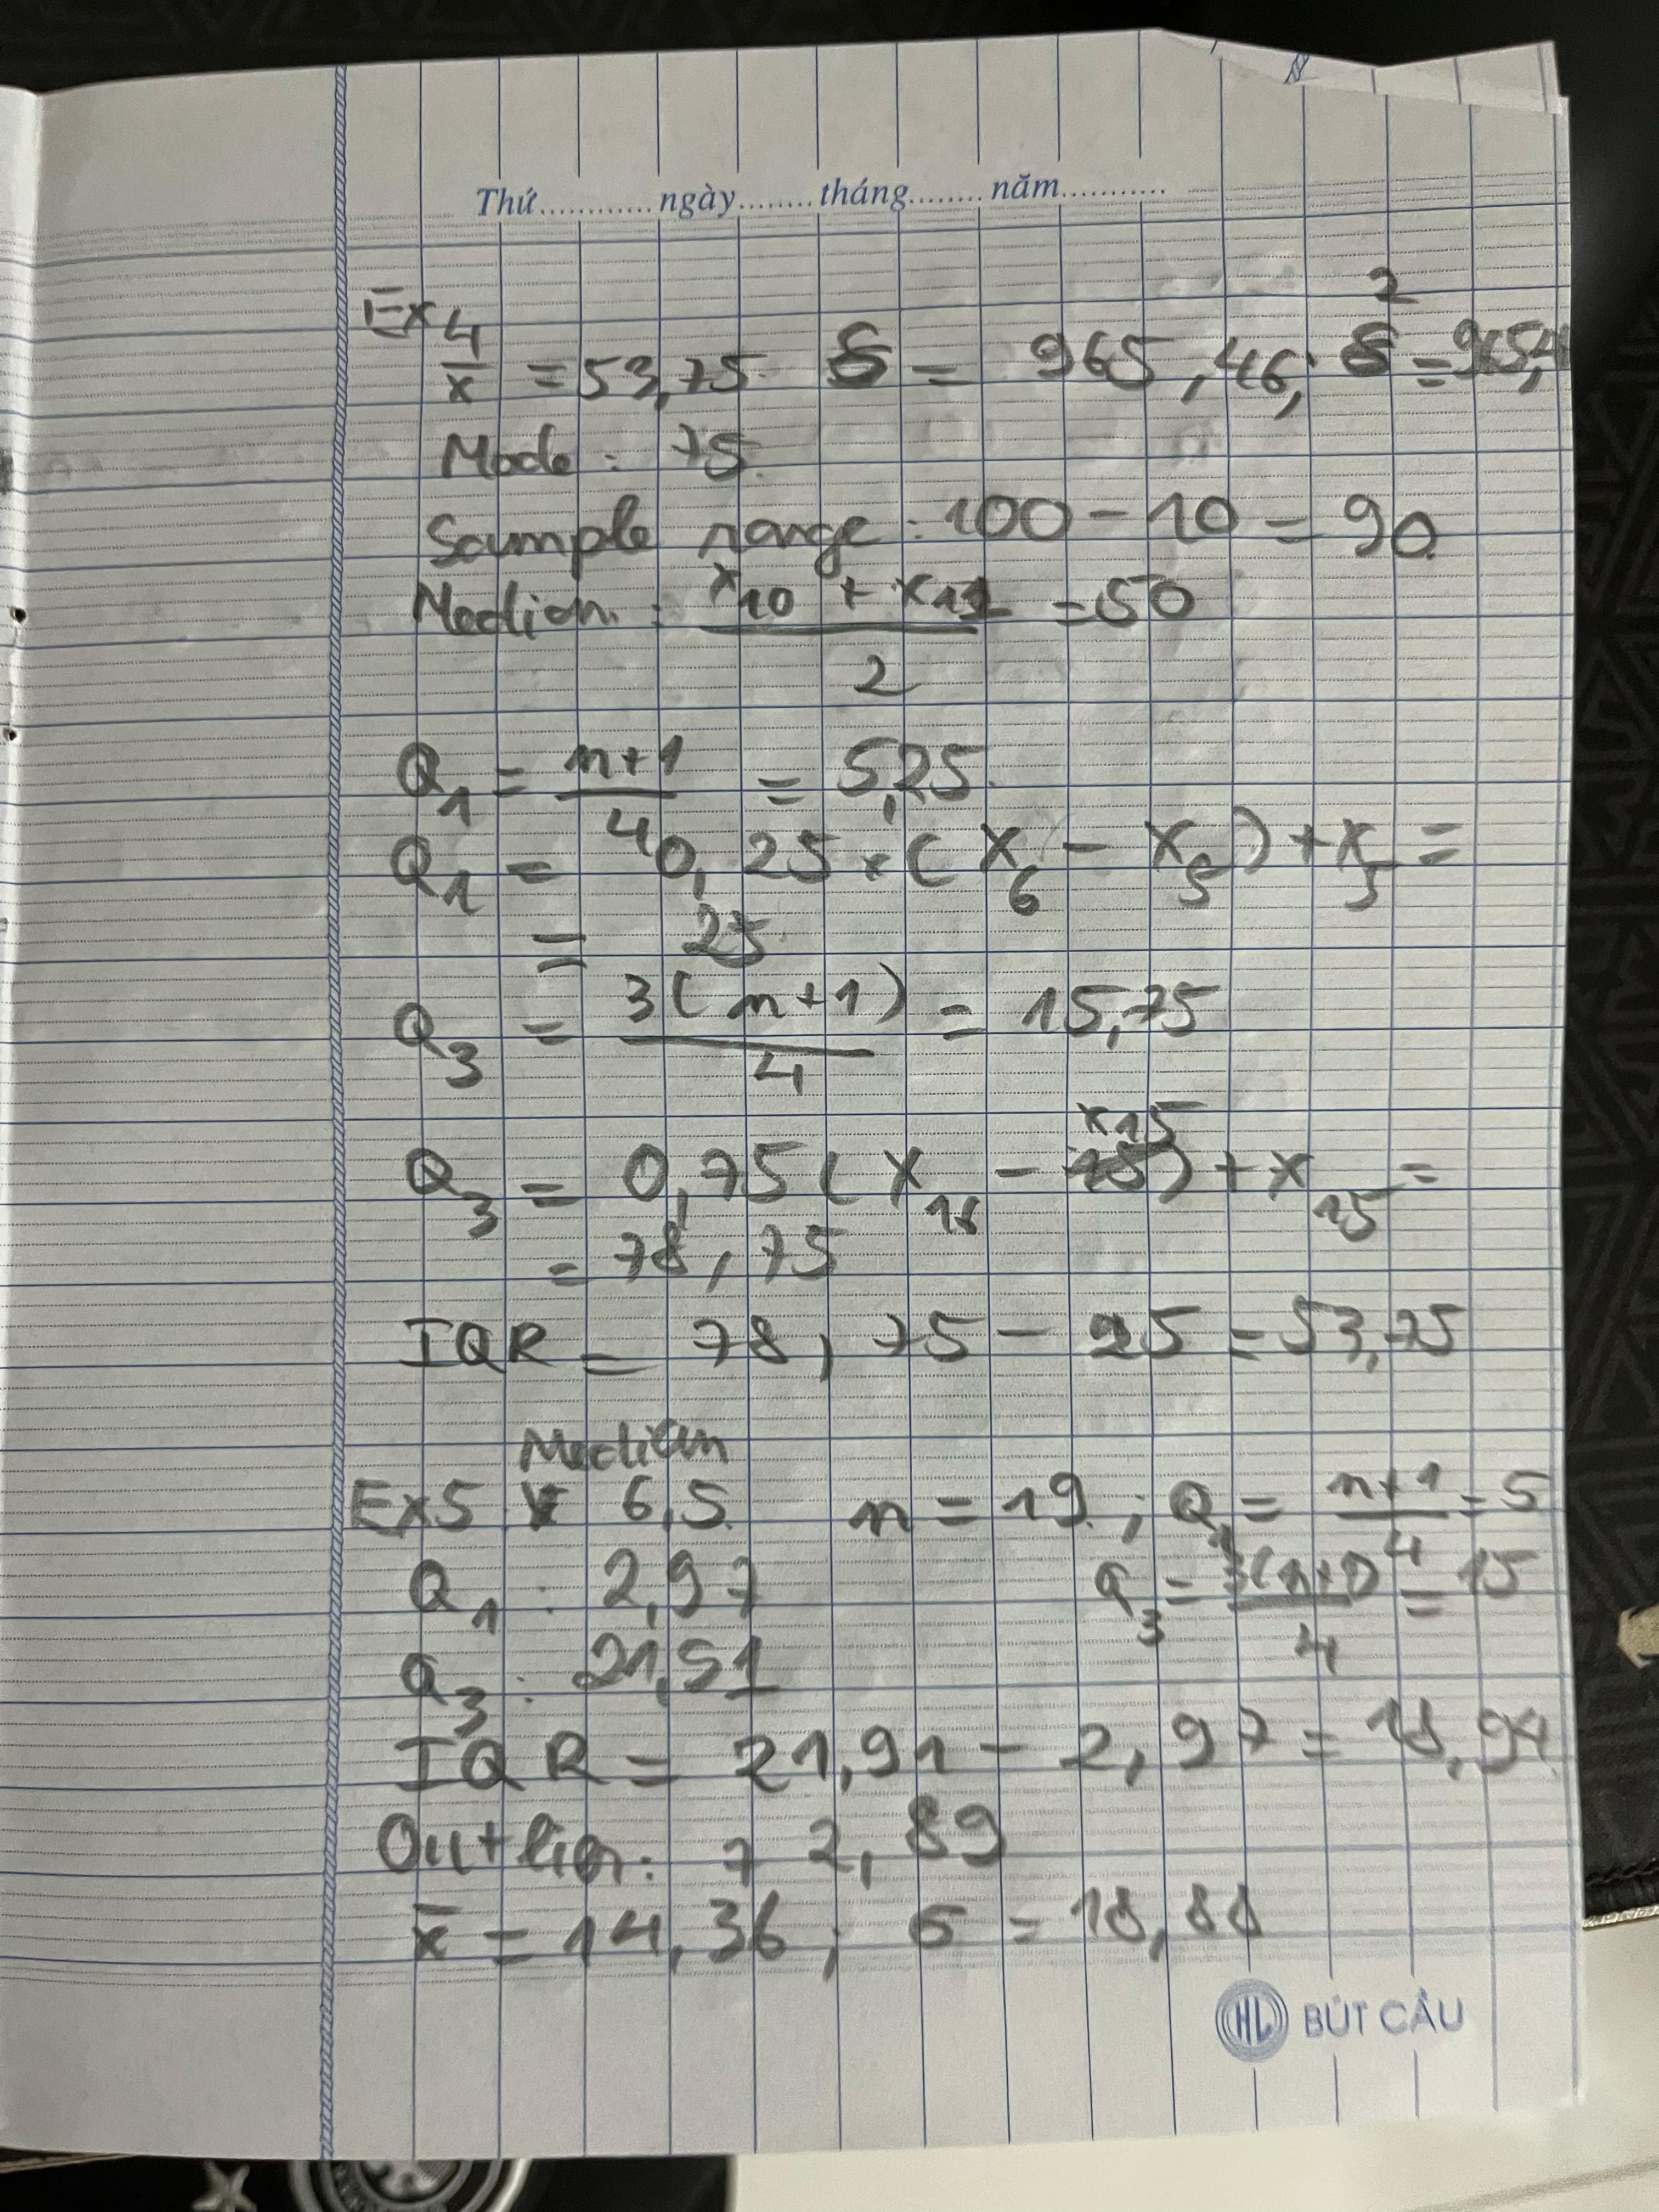 Thứ............ ngày........ tháng........ năm...........
Ex 4
x̄ = 53,75. S = 965,46; S² = 965,4
Mode : 75.
Sample range : 100 - 10 = 90
Median : (x₁₀ + x₁₁)/2 = 50
Q₁ = (n+1)/4 = 5,25.
Q₁ = 0,25 × (x₆ - x₅) + x₅ =
= 25
Q₃ = 3(n+1)/4 = 15,75
Q₃ = 0,75(x₁₆ - x₁₅) + x₁₅ =
= 78,75
IQR = 78,75 - 25 = 53,75
Median
Ex5 : 6,5. n = 19 ; Q₁ = (n+1)/4 = 5
Q₁ : 2,97 Q₃ = 3(n+1)/4 = 15
Q₃ : 21,51
IQR = 21,91 - 2,97 = 18,94
Outlier: 72,89
x̄ = 14,36 ; S = 18,88
HL BÚT CÂU